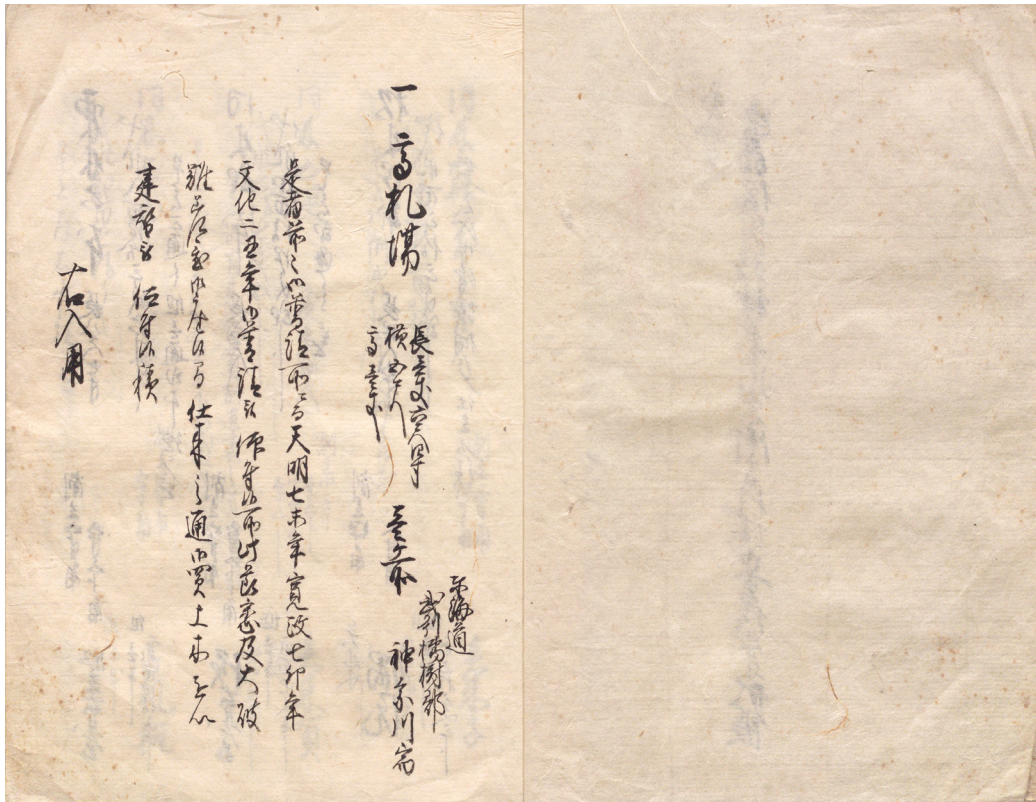 一 高札場
長壱丈六尺
横五尺
高壱丈
壱ヶ所
東海道
武州橘樹郡
神奈川宿
是者前々御普請所ニ而天明七未年寛政七卯年
文化二丑年御普請被 仰付候所此節悉及大破
難 御座候間 仕来之通御買上木を以
建替被 仰付候積
右入用